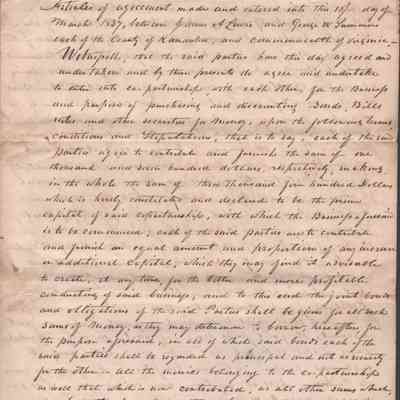 Articles of agreement made and entered into this 10th day of
March 1837, between James A Lewis and George W Summers
each of the County of Kanawha, and commonwealth of Virginia,
Witnesseth, that the said parties have this day agreed and
undertaken and by these presents do agree and undertake
to enter into co-partnership with each other, for the Business
and purpose of purchasing and discounting Bonds, Bills
notes and other securities for Money, upon the following terms
conditions and Stipulations, that is to say, each of the said
parties agree to contribute and furnish the sum of one
thousand and hundred dollars, respectively, making
in the whole the sum of three thousand hundred Dollars
which is hereby constituted and declared to be the
capital of said copartnership, with which the Business aforesaid
is to be commenced; each of the said parties are to contribute
and furnish an equal amount and proportion of any increase
or additional Capital, which they may find it advisable
to create, at any time, for the better and more profitable
conducting of said business, and to this end the joint bonds
and obligations of the said Parties shall be given for all such
sums of Money, as they may determine to borrow, hereafter, for
the purpose aforesaid, in all of which said bonds each of the
said parties shall be regarded as principal and not as security
for the other - all the monies belonging to the co-partnership
as well that which is now contributed, as all other sums which,